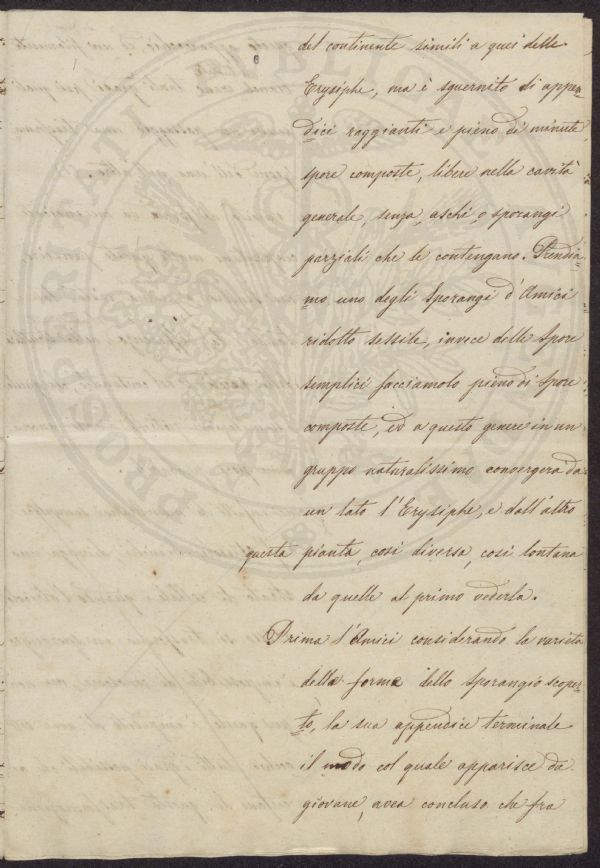 6
del continente simili a quei delle
Erysiphe, ma è sguernito di appen-
dici raggianti e pieno di minute
spore composte, libere nella cavità
generale, senza aschi, o sporangi
parziali che le contengano. Prendia-
mo uno degli Sporangi d'Amici
ridotto sessile, invece delle Spore
semplici facciamolo pieno di Spore
composte, ed a questo genere in un
gruppo naturalissimo convergerà da
un lato l'Erysiphe, e dall'altro
questa pianta, così diversa, così lontana
da quelle al primo vederla.
Prima l'Amici considerando la varietà
della forma dello Sporangio scoper-
to, la sua appendice terminale
il modo col quale apparisce da
giovane, avea concluso che fra